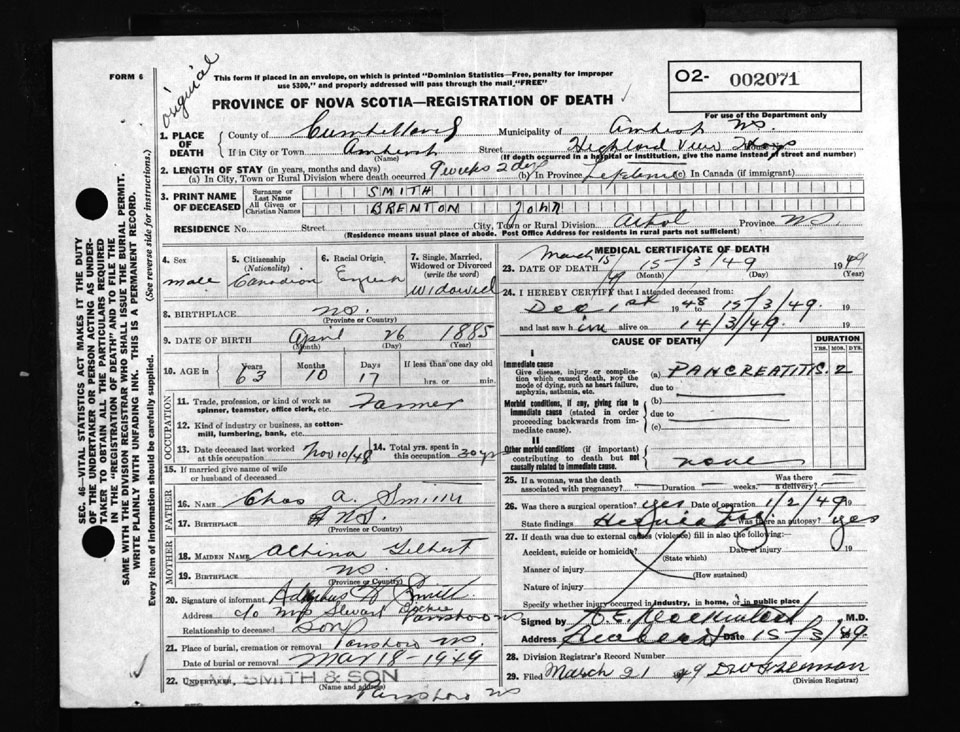 FORM 6
original
This form if placed in an envelope, on which is printed "Dominion Statistics—Free, penalty for improper
use $300," and properly addressed will pass through the mail "FREE"
O2- 002071
For use of the Department only
PROVINCE OF NOVA SCOTIA—REGISTRATION OF DEATH
1. PLACE OF DEATH
County of Cumberland Municipality of Amherst NS.
If in City or Town Amherst Street Highland View Hosp
(Name) (If death occurred in a hospital or institution, give the name instead of street and number)
2. LENGTH OF STAY (in years, months and days)
(a) In City, Town or Rural Division where death occurred 9 weeks 2 days (b) In Province Lifetime (c) In Canada (if immigrant)
3. PRINT NAME OF DECEASED
Surname or Last Name SMITH
All Given or Christian Names BRENTON JOHN
RESIDENCE No. Street City, Town or Rural Division Athol Province NS.
(Residence means usual place of abode. Post Office Address for residents in rural parts not sufficient)
4. Sex male
5. Citizenship (Nationality) Canadian
6. Racial Origin English
7. Single, Married, Widowed or Divorced (write the word) Widowed
8. BIRTHPLACE NS.
(Province or Country)
9. DATE OF BIRTH April 26 1885
(Month) (Day) (Year)
10. AGE in Years 63 Months 10 Days 17 If less than one day old hrs. or min.
OCCUPATION
11. Trade, profession or kind of work as spinner, teamster, office clerk, etc. Farmer
12. Kind of industry or business, as cotton-mill, lumbering, bank, etc.
13. Date deceased last worked at this occupation Nov 10/48
14. Total yrs. spent in this occupation 30 yrs
15. If married give name of wife or husband of deceased
FATHER
16. Name Chas A. Smith
17. Birthplace NS.
(Province or Country)
MOTHER
18. MAIDEN NAME Albina Gilbert
19. Birthplace NS.
(Province or Country)
20. Signature of informant Smith
Address c/o Mrs Stewart Dickie Parrsboro NS
Relationship to deceased Son
21. Place of burial, cremation or removal Parrsboro NS.
Date of burial or removal Mar 18-1949
22. UNDERTAKER SMITH & SON
(Name and address) Parrsboro NS
MEDICAL CERTIFICATE OF DEATH
23. DATE OF DEATH March 15 15/3/49 1949
(Month) (Day) (Year)
24. I HEREBY CERTIFY that I attended deceased from:
Dec 1st 1948 15/3/49. 19
and last saw him alive on 14/3/49. 19
CAUSE OF DEATH
DURATION
YRS. MOS. DYS.
I
Immediate cause
Give disease, injury or complication which caused death, NOT the mode of dying, such as heart failure, asphyxia, asthenia, etc.
(a) PANCREATITIS. 2
due to
Morbid conditions, if any, giving rise to immediate cause (stated in order proceeding backwards from immediate cause).
(b)
due to
(c)
II
Other morbid conditions (if important) contributing to death but not causally related to immediate cause.
none
25. If a woman, was the death associated with pregnancy? Duration weeks. Was there a delivery?
26. Was there a surgical operation? yes Date of operation 1/2/49 19
State findings Was there an autopsy? yes
27. If death was due to external causes (violence) fill in also the following:
Accident, suicide or homicide? Date of injury 19
(State which)
Manner of injury
(How sustained)
Nature of injury
Specify whether injury occurred in industry, in home, or in public place
Signed by M.D.
Address Date 15/3/49 19
28. Division Registrar's Record Number
29. Filed March 21 1949
(Division Registrar)
SEC. 46—VITAL STATISTICS ACT MAKES IT THE DUTY
OF THE UNDERTAKER OR PERSON ACTING AS UNDERTAKER
TO OBTAIN ALL THE PARTICULARS REQUIRED
IN THE "REGISTRATION OF DEATH" AND TO FILE THE
SAME WITH THE DIVISION REGISTRAR WHO SHALL ISSUE THE BURIAL PERMIT.
WRITE PLAINLY WITH UNFADING INK. THIS IS A PERMANENT RECORD.
Every item of information should be carefully supplied. (See reverse side for instructions.)